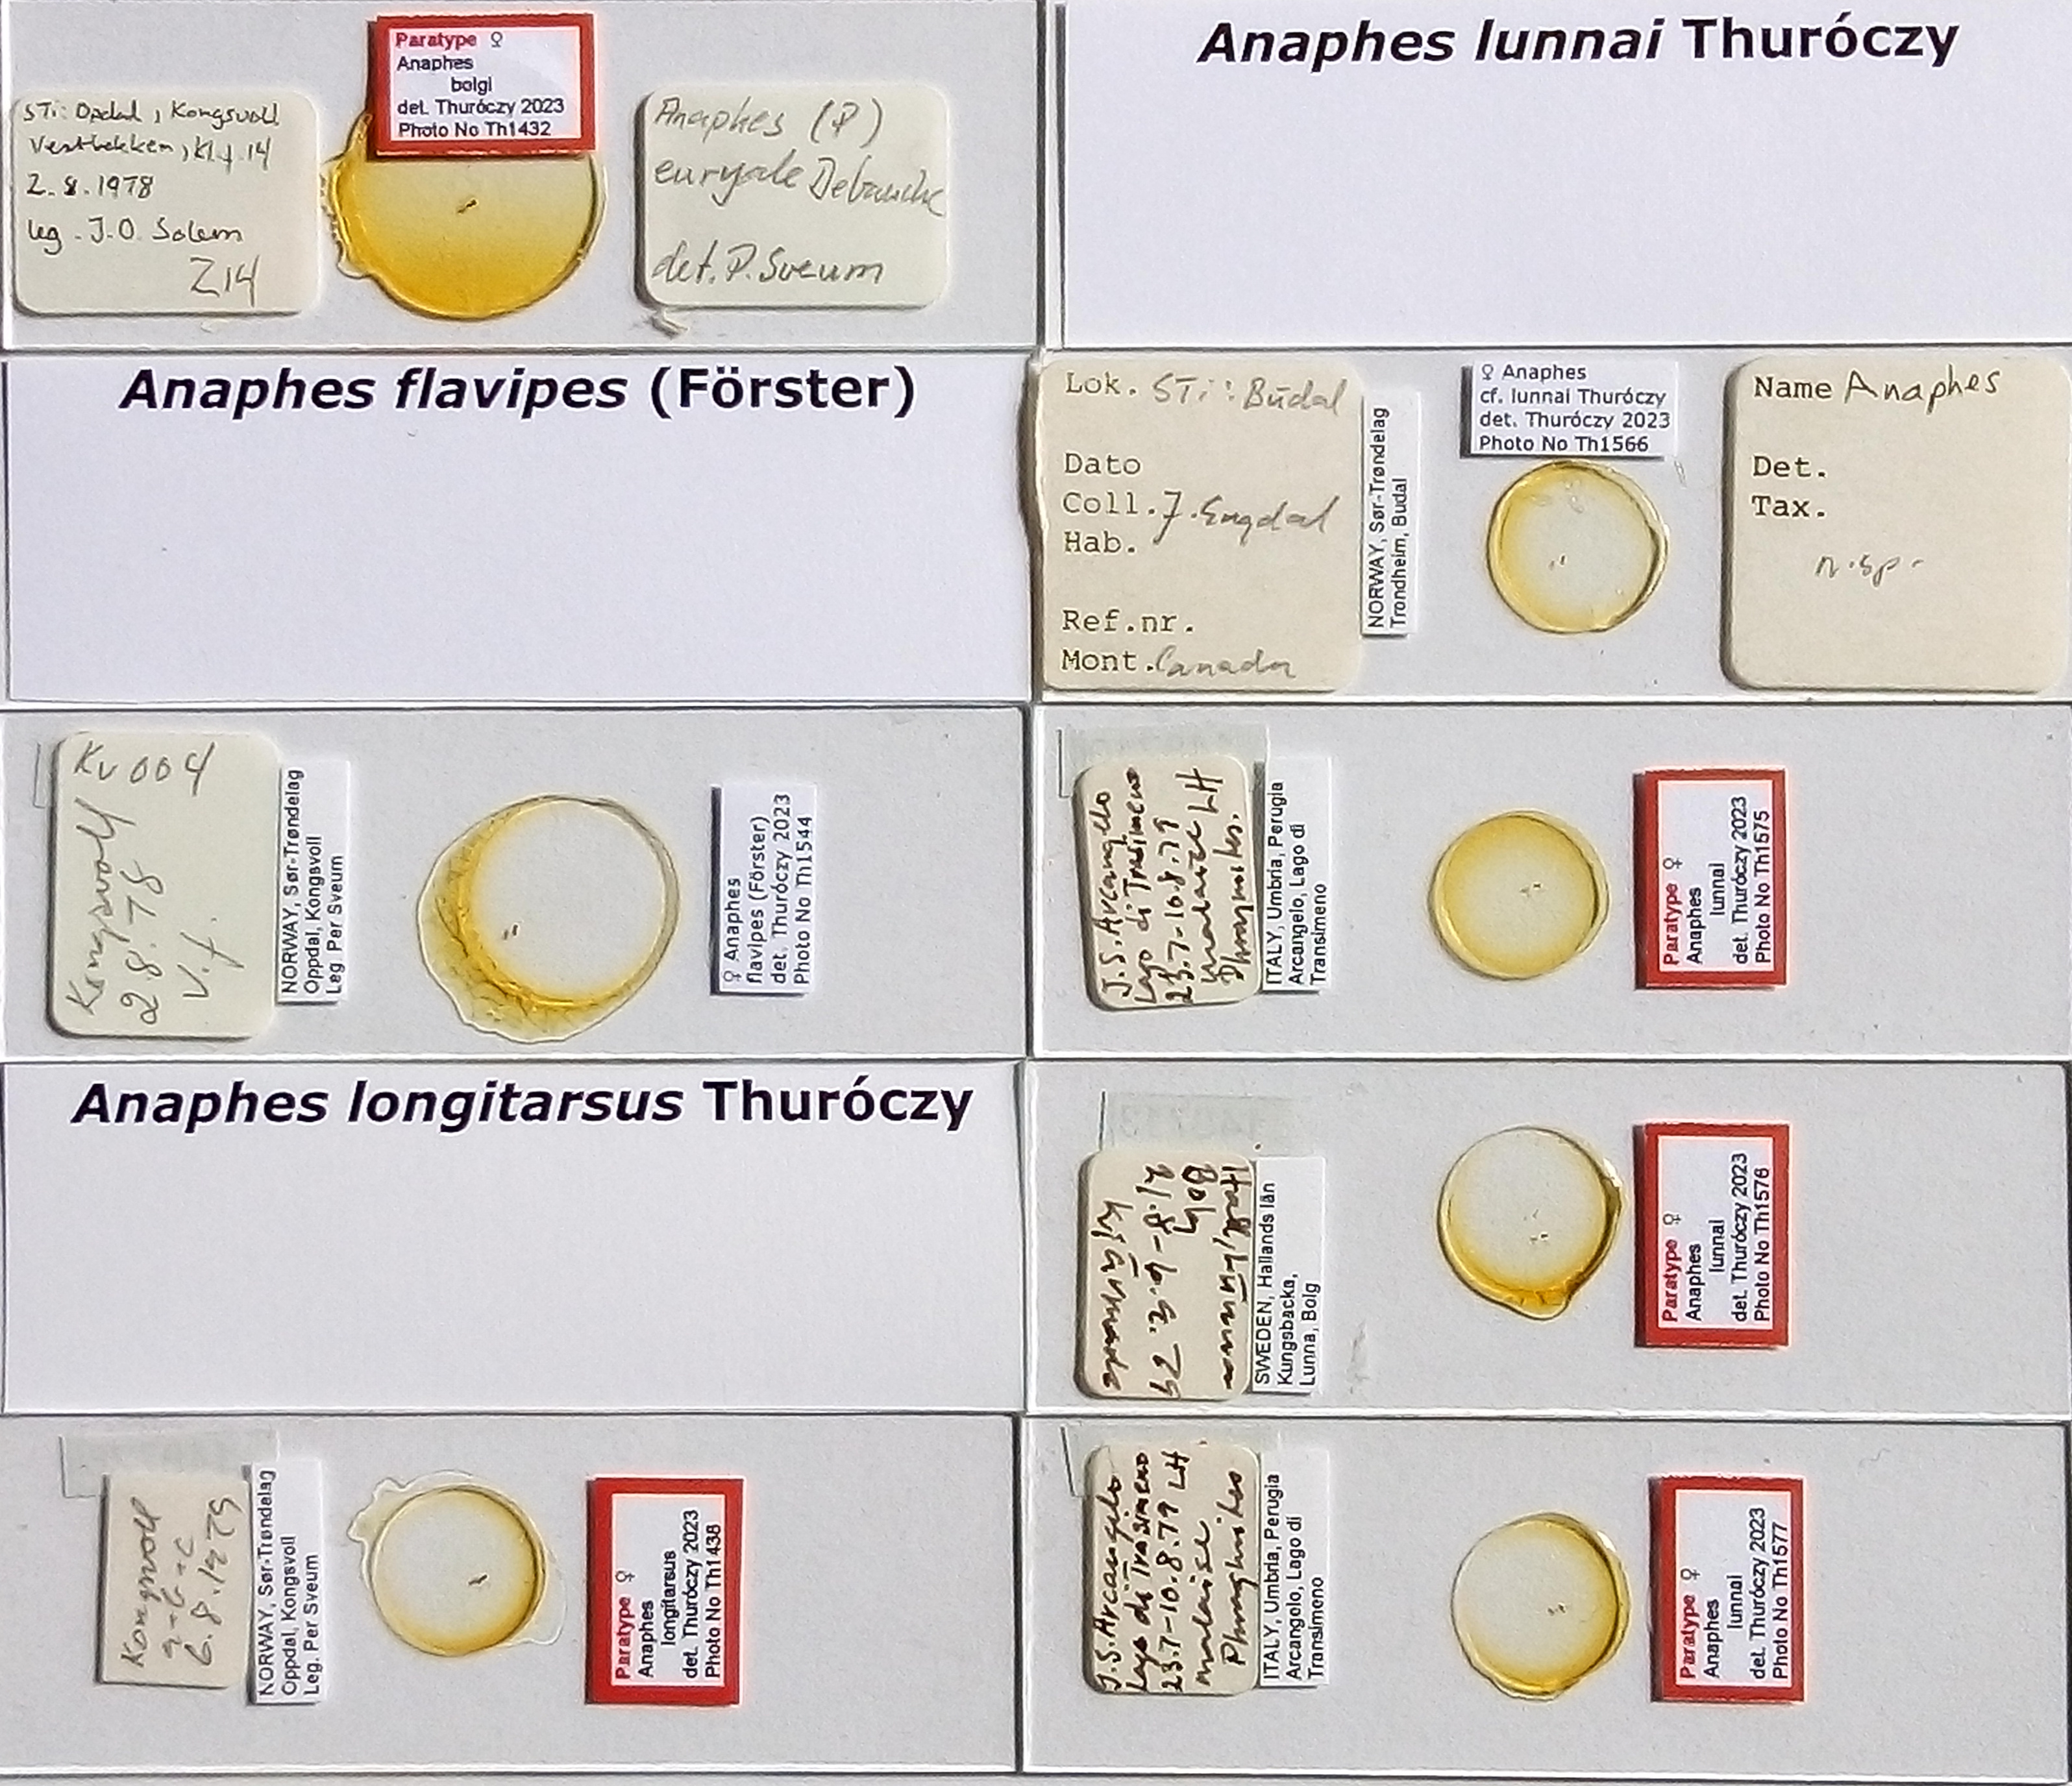 STi: Opdal, Kongsvoll
Vestbekken, kl.f. 14
2.8.1978
leg. J.O. Solem
Z14
Paratype ♀
Anaphes
bolgi
det. Thuróczy 2023
Photo No Th1432
Anaphes (P)
euryale Debauche
det. P. Sveum
Anaphes flavipes (Förster)
Kv 004
Kongsvoll
2.8.78
V.f.
NORWAY, Sør-Trøndelag
Oppdal, Kongsvoll
Leg. Per Sveum
♀ Anaphes
flavipes (Förster)
det. Thuróczy 2023
Photo No Th1544
Anaphes longitarsus Thuróczy
Kongsvoll
a-b-c
6.8.1979
NORWAY, Sør-Trøndelag
Oppdal, Kongsvoll
Leg. Per Sveum
Paratype ♀
Anaphes
longitarsus
det. Thuróczy 2023
Photo No Th1438
Anaphes lunnai Thuróczy
Lok. STi: Budal
Dato
Coll. J. Engdal
Hab.
Ref.nr.
Mont. Canada
NORWAY, Sør-Trøndelag
Trondheim, Budal
♀ Anaphes
cf. lunnai Thuróczy
det. Thuróczy 2023
Photo No Th1566
Name Anaphes
Det.
Tax.
n.sp.
J.S. Arcangelo
Lago di Trasimeno
23.7-10.8.79
Malaise LH
ITALY, Umbria, Perugia
Arcangelo, Lago di
Transimeno
Paratype ♀
Anaphes
lunnai
det. Thuróczy 2023
Photo No Th1575
SWEDEN, Hallands län
Kungsbacka,
Lunna, Bolg
Paratype ♀
Anaphes
lunnai
det. Thuróczy 2023
Photo No Th1576
J.S. Arcangelo
Lago di Trasimeno
23.7-10.8.79 LH
malaise
Phragmites
ITALY, Umbria, Perugia
Arcangelo, Lago di
Transimeno
Paratype ♀
Anaphes
lunnai
det. Thuróczy 2023
Photo No Th1577